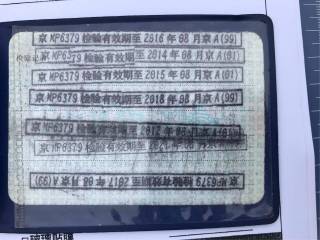 京MP6379检验有效期至2016年08月京A(99)
京MP6379检验有效期至2014年08月京A(01)
京MP6379检验有效期至2015年08月京A(01)
京MP6379检验有效期至2018年08月京A(99)
京MP6379检验有效期至2012年08月京A
京MP6379检验有效期至20 月京A(01)
京MP6379检验有效期至2017年08月京A(99)